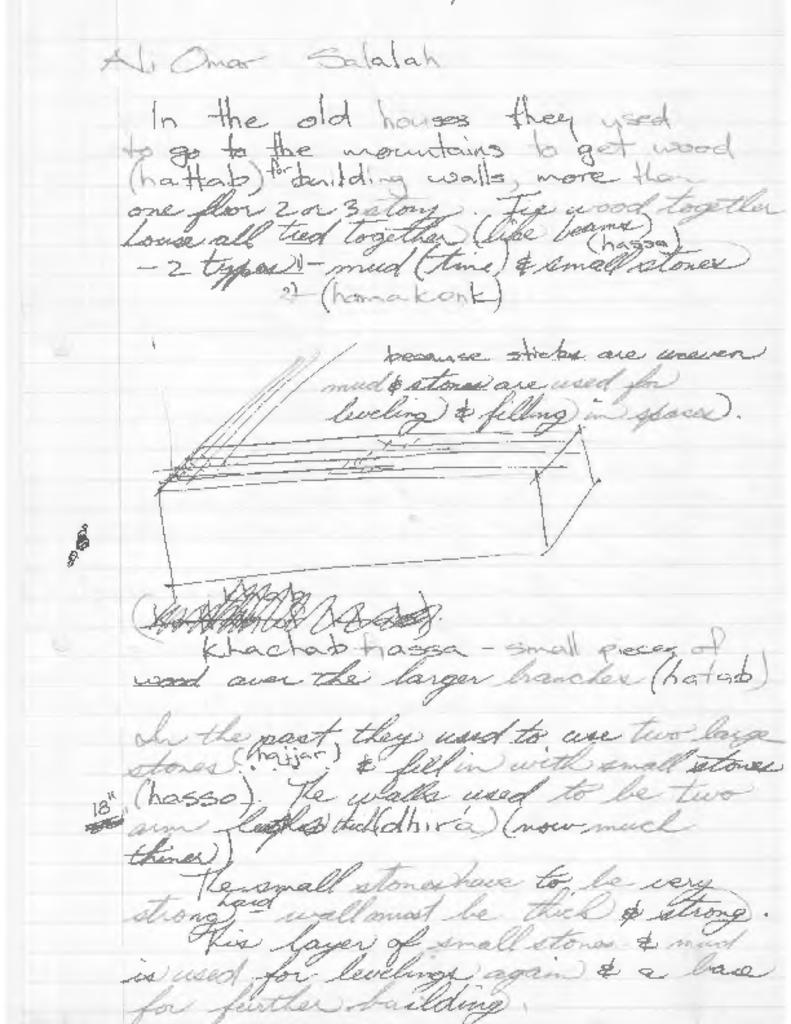 Ali Omar Salalah
In the old houses they used
to go to the mountains to get wood
(hattab) for building walls, more than
one floor 2 or 3 story. Tie wood together
house all tied together (like beams)
- 2 types 1) - mud (tine) & small stones (hassa)
2) - (homakonk)
because sticks are uneven
mud & stones are used for
leveling & filling in spaces).
Khachab hassa - small pieces of
wood over the larger branches (hatab)
In the past they used to use two large
stones (hajjar) & fill in with small stones
(hasso). The walls used to be two
18" arm lengths thick (dhirá) (now much
thiner)
The small stones have to be very
strong hard - wall must be thick & strong.
This layer of small stones & mud
is used for levelings again & a base
for further building.